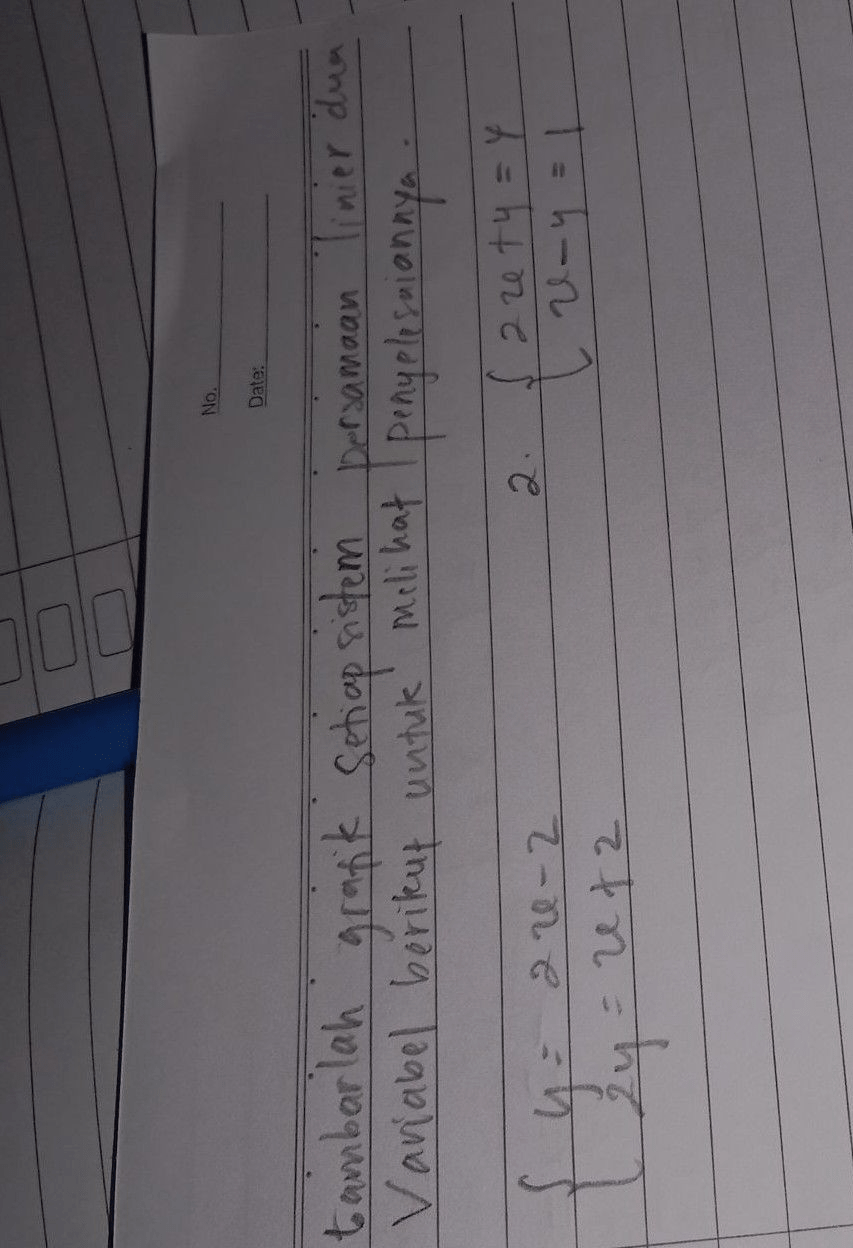 No.
Date:
Gambarlah grafik setiap sistem persamaan linier dua
Variabel berikut untuk melihat penyelesaiannya.
{ y = 2x - 2
2y = x + 2
2. { 2x + y = 4
x - y = 1